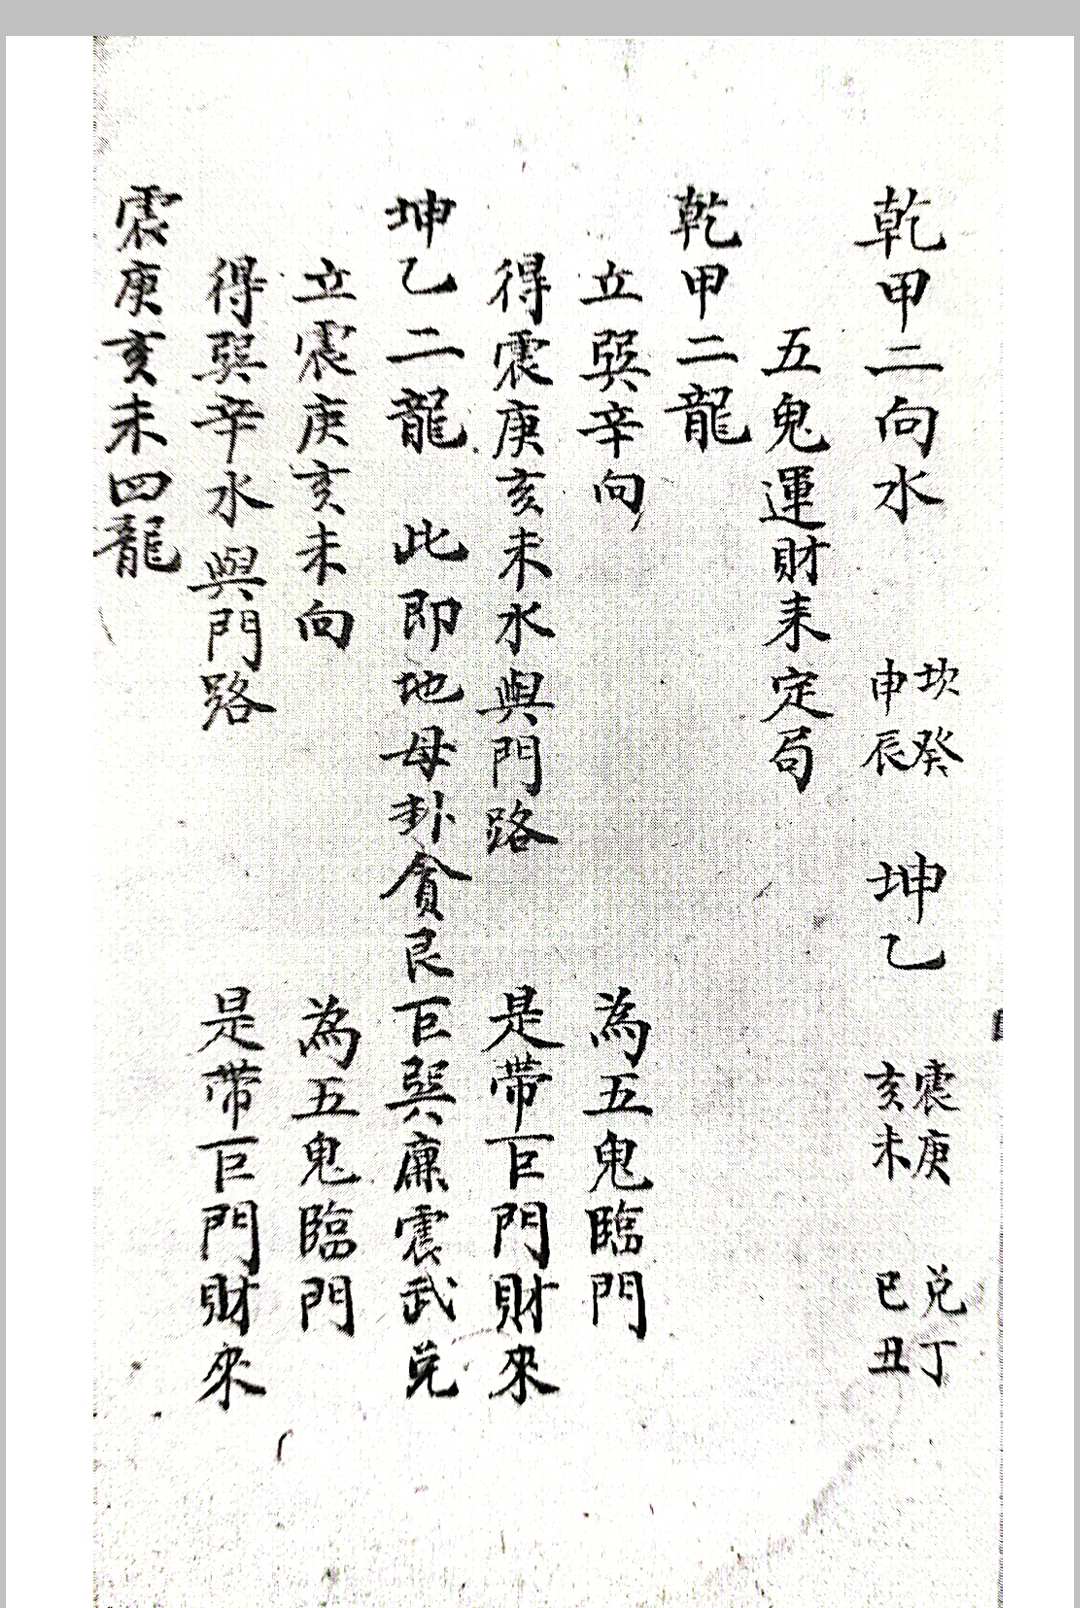 乾甲二向水 坎癸申辰 坤乙 震庚亥未 兑丁巳丑
五鬼運財耒定局
乾甲二龍
立巽辛向 為五鬼臨門
得震庚亥未水與門路 是帶巨門財來
坤乙二龍 此即地母卦貪艮巨巽廉震武兑
立震庚亥未向 為五鬼臨門
得巽辛水與門路 是帶巨門財來
震庚亥未四龍